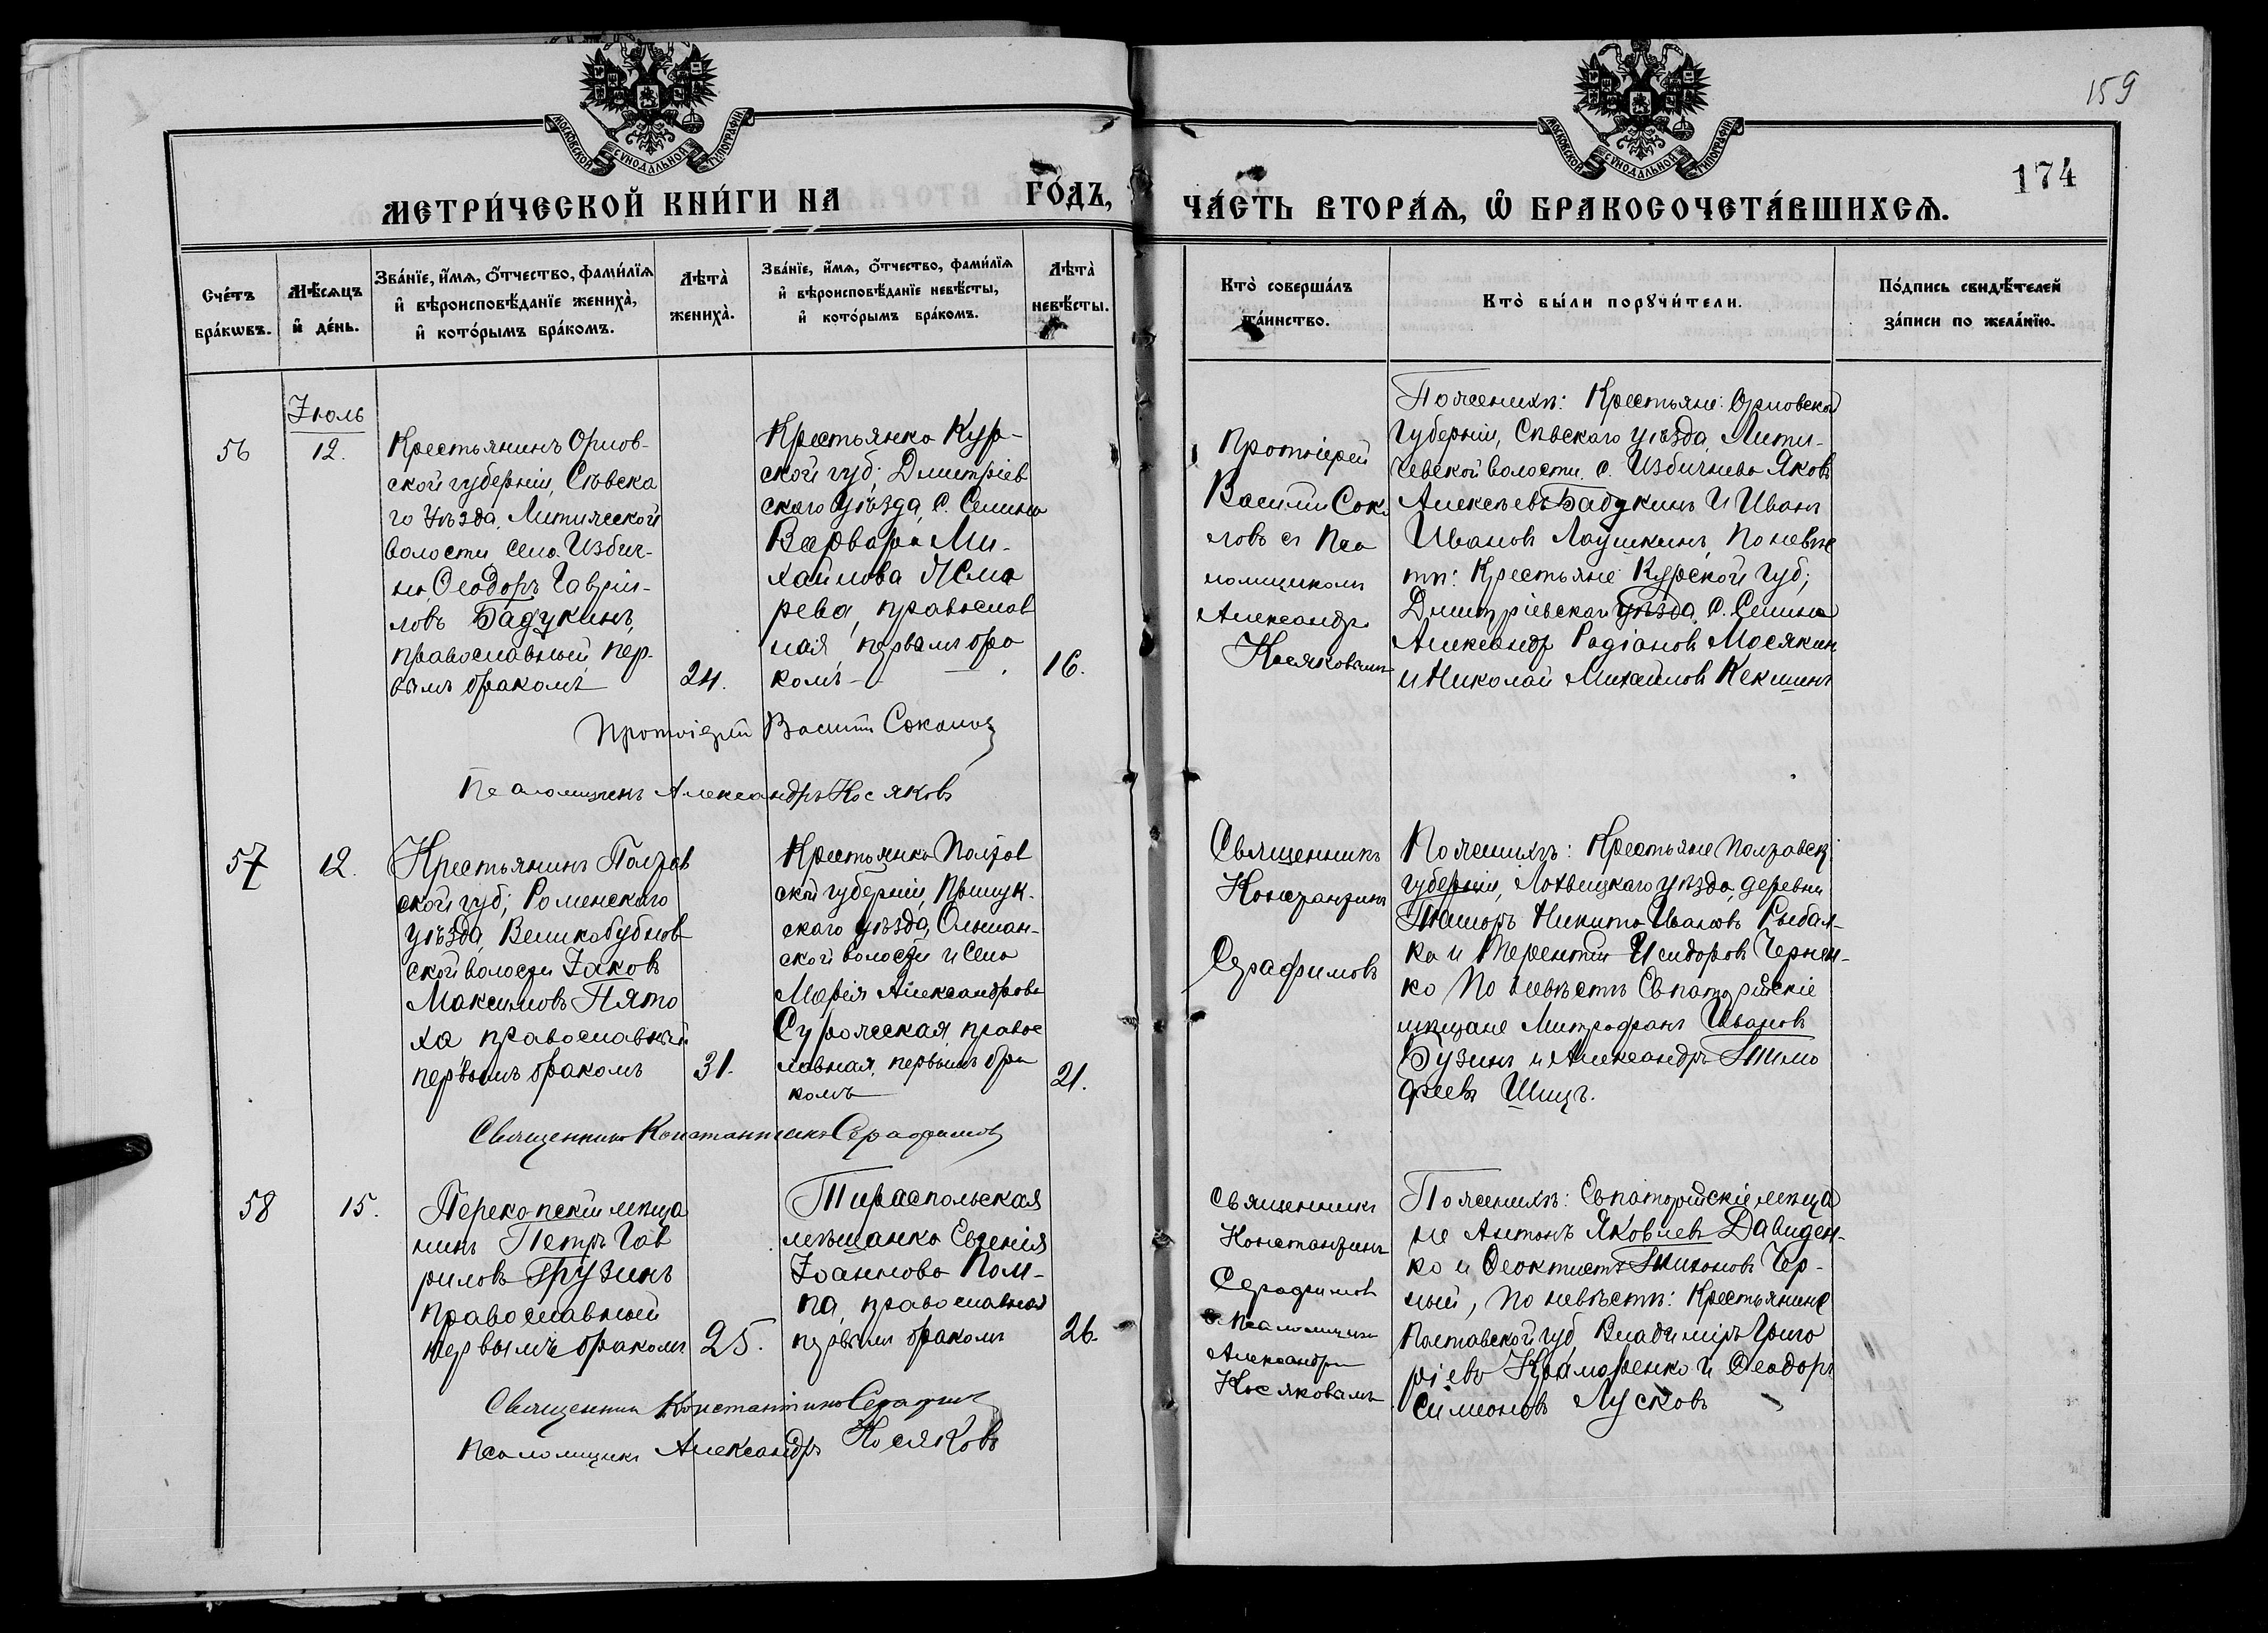 159
174
МОСКОВСКОЙ СУНОДАЛЬНОЙ ТИПОГРАФІИ
МОСКОВСКОЙ СУНОДАЛЬНОЙ ТИПОГРАФІИ
МЕТРИ́ЧЕСКОЙ КНИ́ГИ НА ГО́ДЪ,
ЧА́СТЬ ВТОРА́Ѧ, Ѽ БРАКОСОЧЕТА́ВШИХСѦ.
Сче́тъ бра́кѡвъ.
Мѣ́сѧцъ и҆ де́нь.
Зва́нїе, и҆́мѧ, ѻ҆́тчество, фами́лїѧ
и҆ вѣроисповѣ́данїе жениха̀,
и҆ кото́рымъ бра́комъ.
Лѣта̀ жениха̀.
Зва́нїе, и҆́мѧ, ѻ҆́тчество, фами́лїѧ
и҆ вѣроисповѣ́данїе невѣ́сты,
и҆ кото́рымъ бра́комъ.
Лѣта̀ невѣ́сты.
Кто̀ соверша́лъ
та́инство.
Кто̀ бы́ли порꙋчи́тели.
По́дпись свидѣ́телей
за́писи по жела́нїю.
Іюль
56
12.
Крестьянинъ Орлов-
ской губерніи, Сѣвска
го уѣзда, Литижской
волости села Избич-
ня Ѳеодоръ Гавріи-
ловъ Бадукинъ,
православный пер-
вымъ бракомъ
24.
Крестьянка Кур-
ской губ; Дмитріев
скаго уѣзда, с. Селина
Варвара Ми-
хайлова
рева, православ
ная первымъ бра
комъ
16.
Протоіерей
Василій Соко
ловъ съ Пса
ломщикомъ
Александр.
Косяковымъ
По женихѣ: Крестьяне: Орловской
Губерніи, Сѣвскаго уѣзда,
волости с. Яковъ
Алексѣевъ Бадукинъ и Иванъ
Ивановъ Лаушкинъ, По невѣс
тѣ: Крестьяне Курской губ;
Дмитріевскаго уѣзда, с. Селина
Александр Радіановъ Мосякин
и Николай Михайловъ Кекшинъ
Протоіерей Василій Соколовъ
Псаломщикъ Александръ Косяковъ
57
12.
Крестьянинъ Полтав
ской губ; Роменскаго
уѣзда, Великобубнов-
ской волости Іаковъ
Максимовъ Пято
ха православный
первымъ бракомъ
31.
Крестьянка Полтав
ской губерніи,
скаго уѣзда, Ольшан-
ской волости и села
Марія Александрова
православ
лавная, первымъ бра
комъ
21.
Священникъ
Константинъ
Серафимовъ
По женихѣ: Крестьяне Полтавск.
губерніи, Лохвицкаго уѣзда, деревни
Никита Ивановъ Рыбал-
ка и Терентій Исидоровъ Чернен-
ко По невѣстѣ Евпаторійскіе
мѣщане Митрофанъ Ивановъ
Бузинъ и Александръ Тимо
феевъ Шицъ.
Священникъ Константинъ Серафимовъ
58
15.
Перекопскій мѣща
нинъ Петръ Гав
риловъ Грузинъ
православный
первымъ бракомъ
25.
Тираспольская
мѣщанка Евгенія
Іоаннова Пом-
па, православная
первымъ бракомъ
26.
Священникъ
Константинъ
Серафимовъ
съ Псаломщик.
Александром
Косяковымъ
По женихѣ: Евпаторійскіе мѣща
не Антонъ Яковлевъ Давиден-
ко и Ѳеоктистъ Тихоновъ Чер-
ный, по невѣстѣ: Крестьянине
Полтавской губ, Владиміръ Григо
ріевъ Крамаренко и Ѳеодоръ
Симеоновъ Лусковъ
Священникъ Константинъ Серафимовъ
Псаломщикъ Александръ Косяковъ